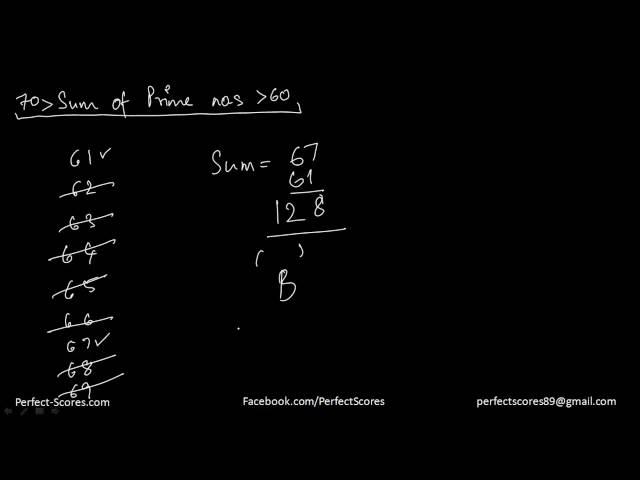 70 > Sum of Prime nos > 60
61 ✓
62
63
64
65
66
67 ✓
68
69
Sum = 67
61
128
( )
B
Perfect-Scores.com
Facebook.com/PerfectScores
perfectscores89@gmail.com